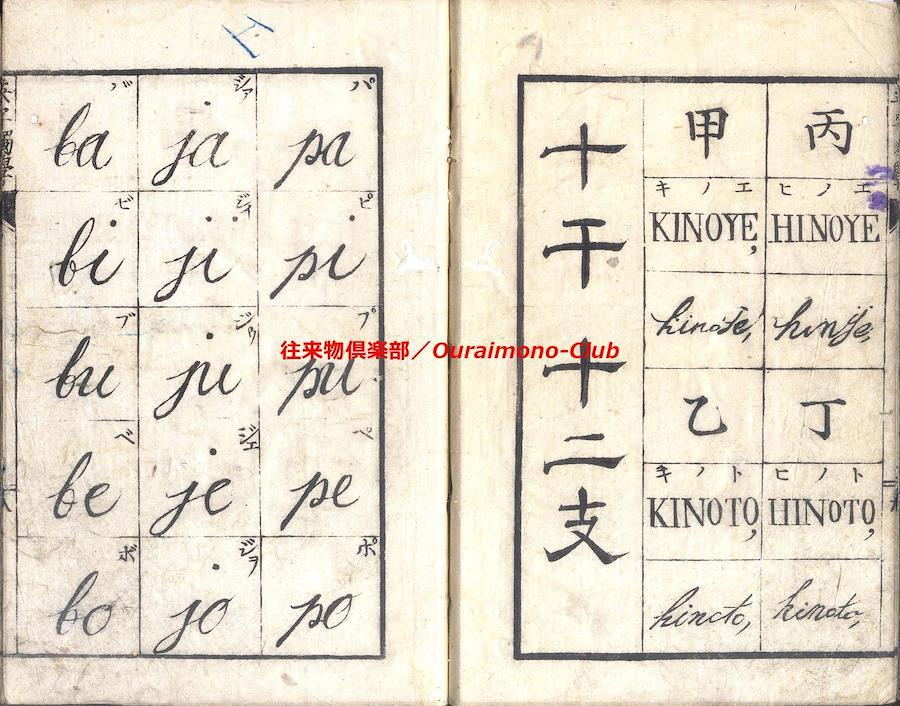 バ ジァ パ
ba ja pa
ビ ジィ ピ
bi ji pi
ブ ジゥ プ
bu ju pu
ベ ジェ ペ
be je pe
ボ ジヲ ポ
bo jo po
十干十二支
甲 丙
キノエ ヒノエ
KINOYE, HINOYE
乙 丁
キノト ヒノト
KINOTO, HINOTO,
kinoto, hinoto,
往来物倶楽部／Ouraimono-Club